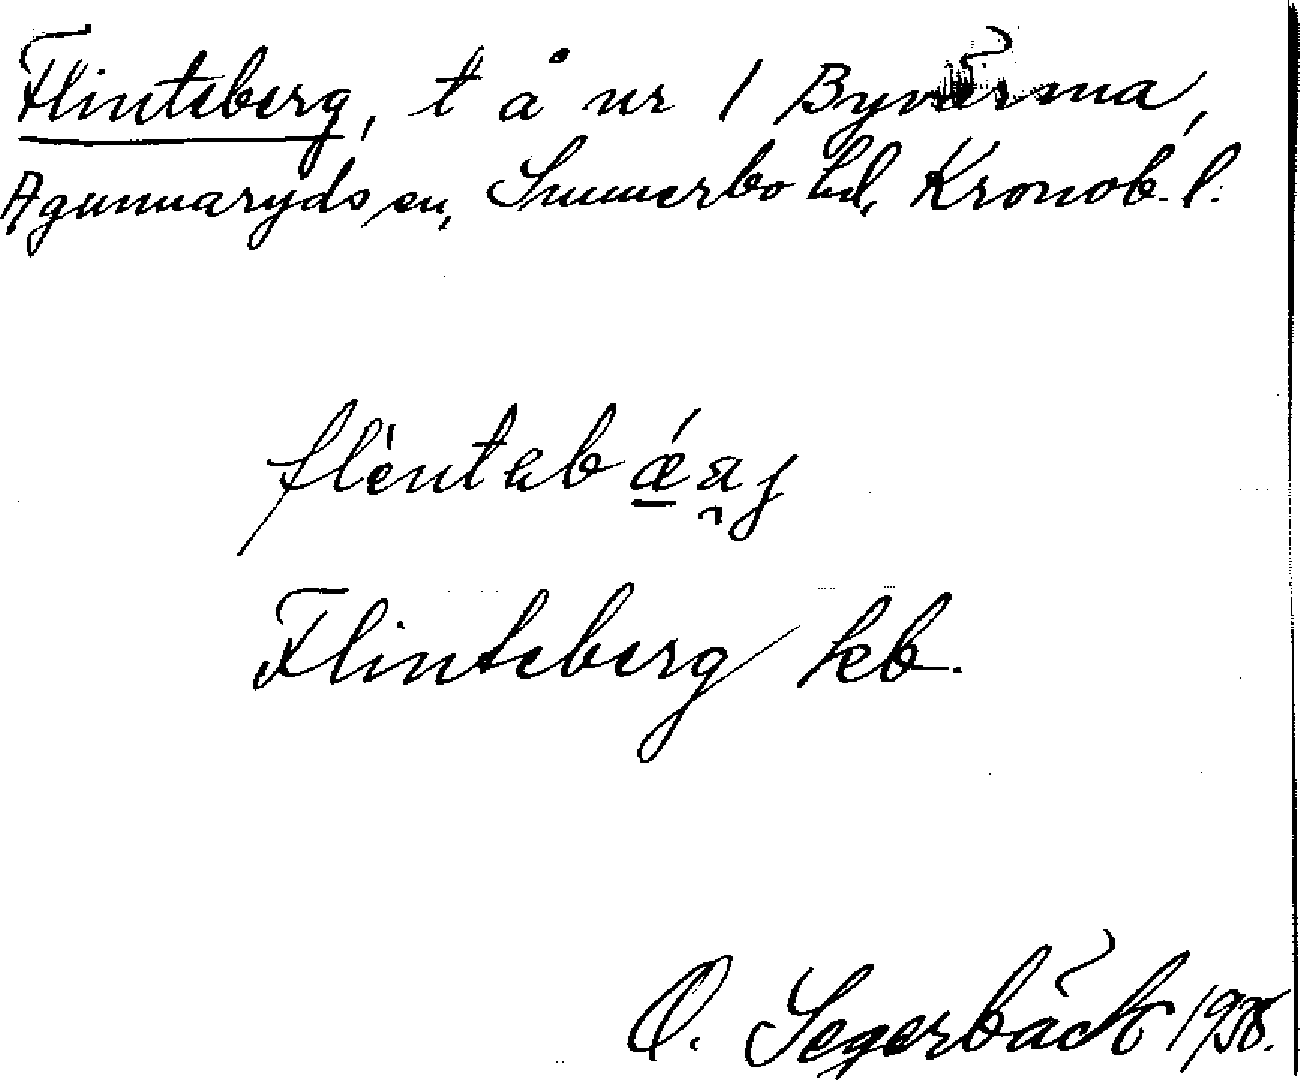 Flinteberg, t å nr 1 Byvärma,
Agunnaryds sn, Sunnerbo hd, Kronob. l.
flèntəbǽrj
Flinteberg kb.
O. Segerbäck 1938.